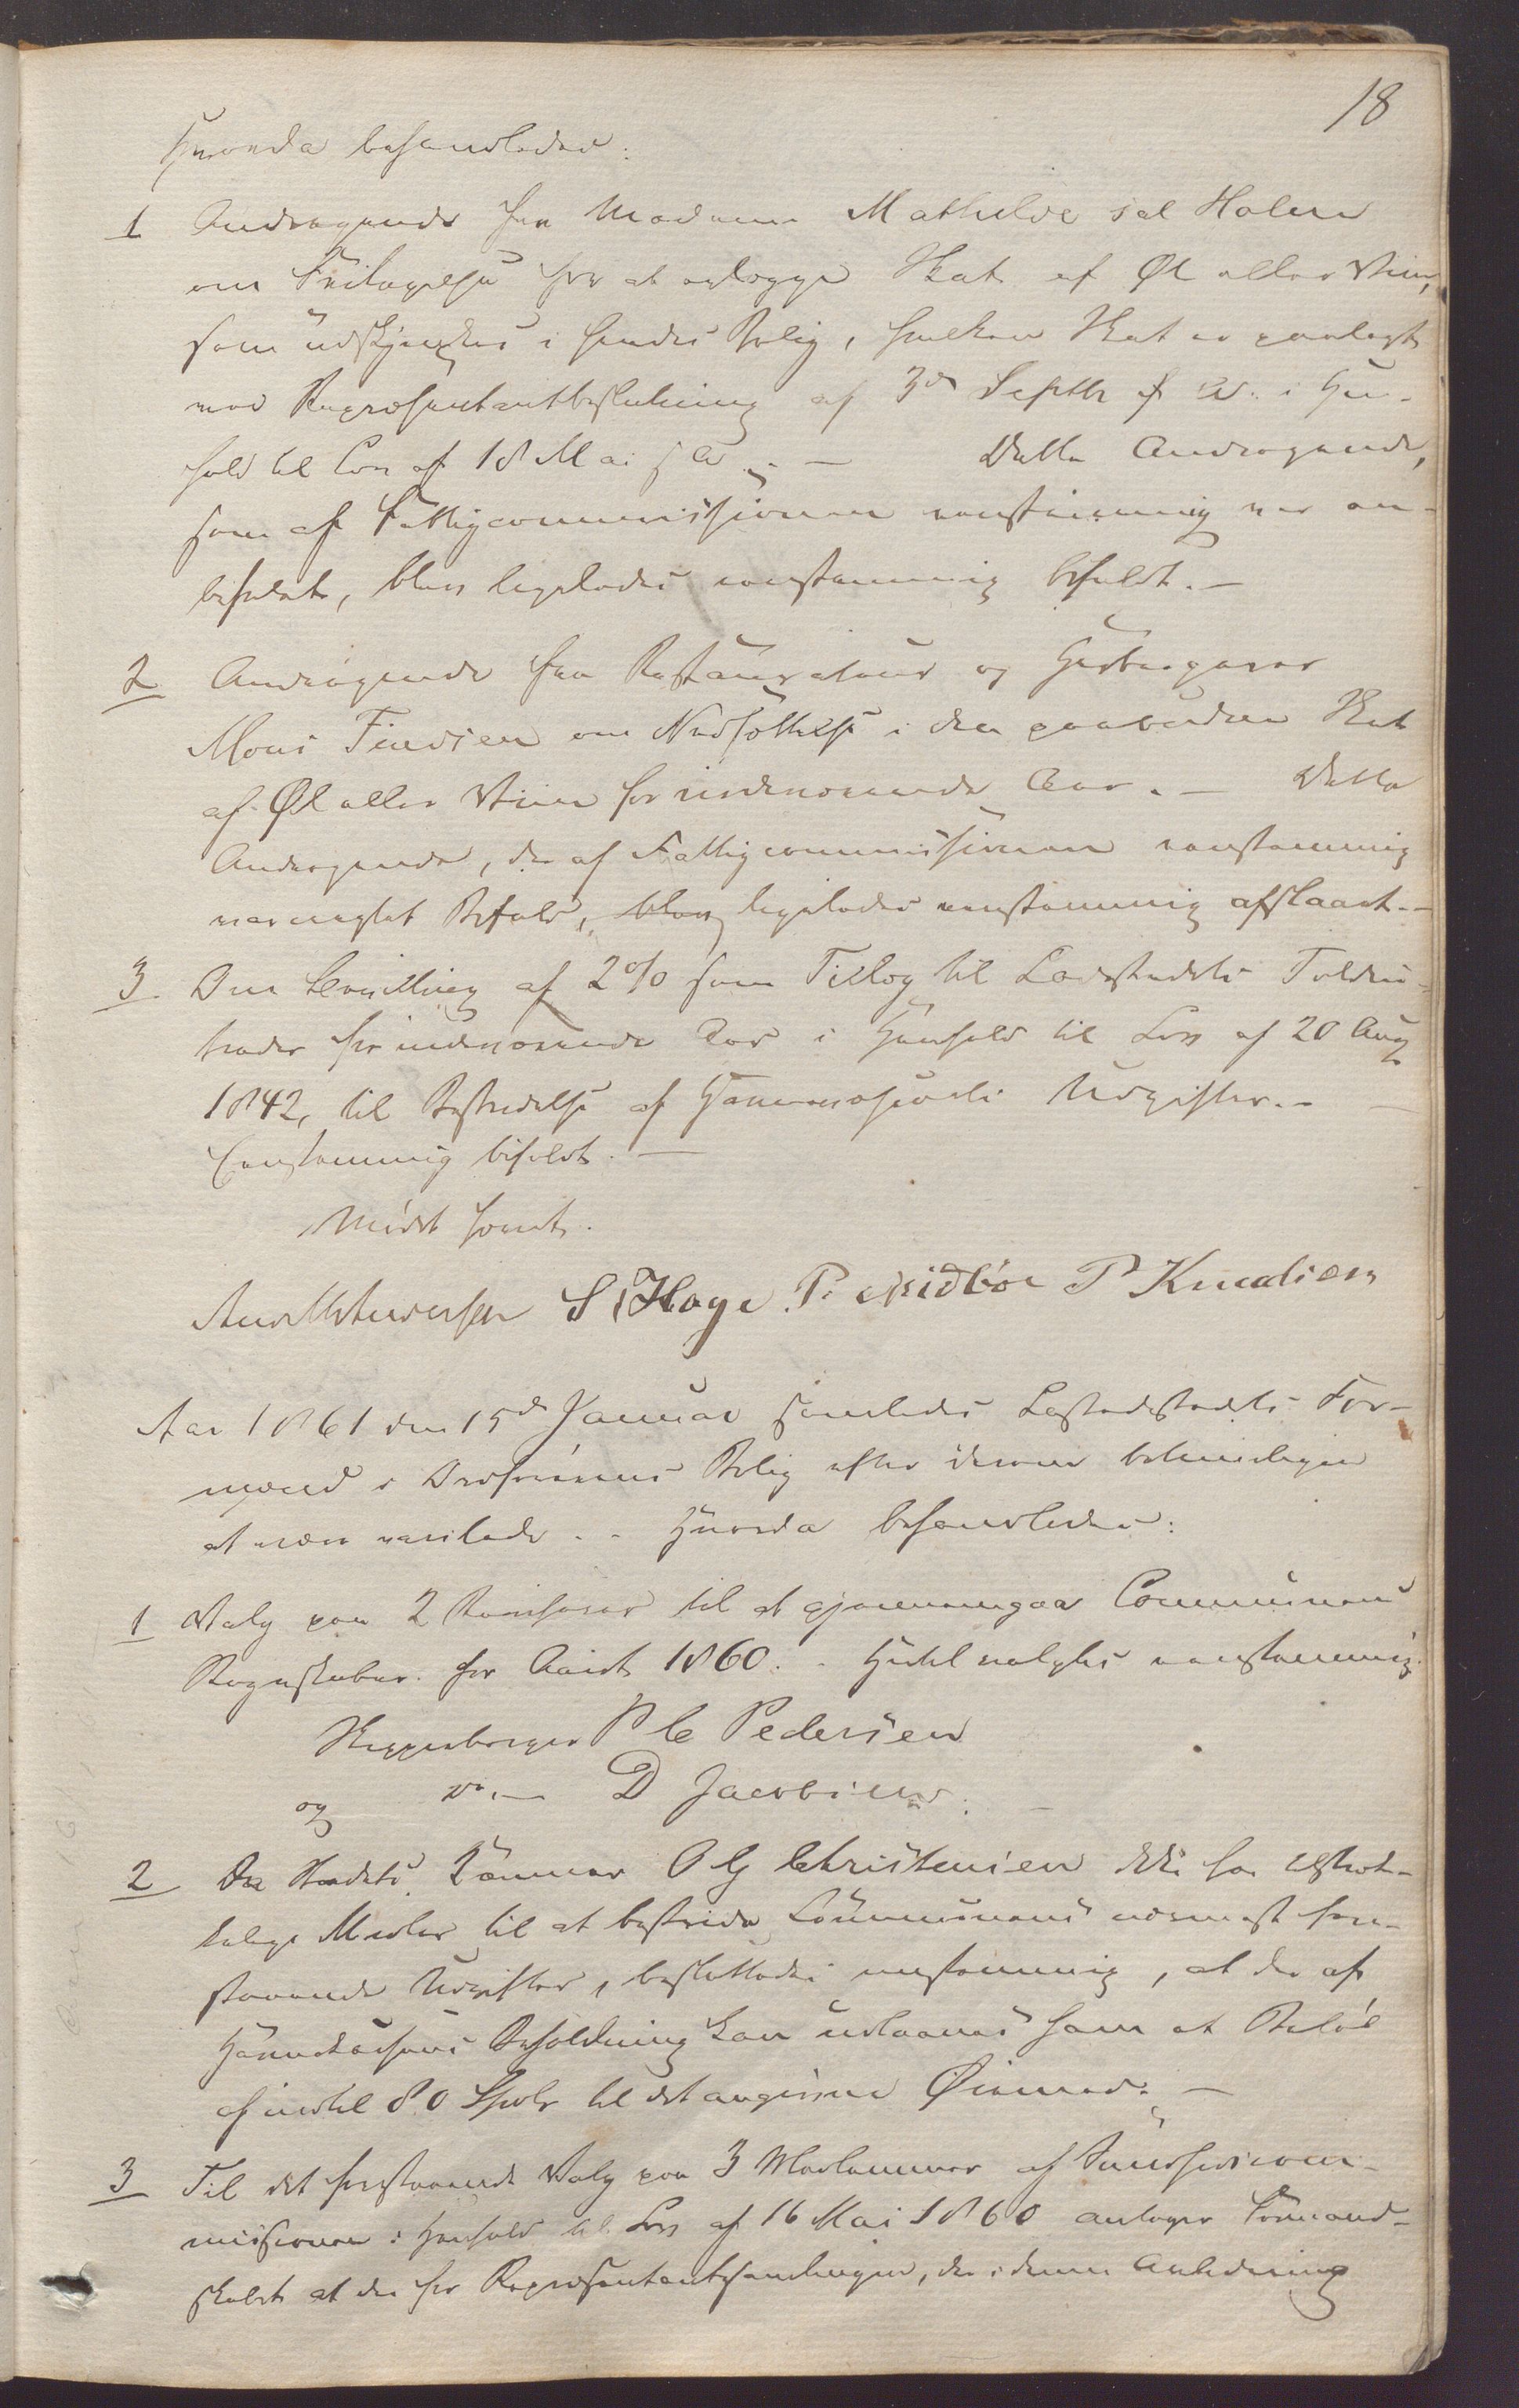 18
Hvorda behandledes:
1 Andragende fra Madame Mathilde sal Holm
om Fritagelse for at erlægge Skat af Øl eller Viin,
som udskjænkes i hendes Bolig, hvilken Skat er paalagt
ved Repræsentantbeslutning af 3de Septbr f A. i Hen-
hold til Lov af 18 Mai f A. — Dette Andragende,
som af Fattigcommissionen eenstemmig var an-
befalet, blev ligeledes eenstemmig bifaldt. —
2 Andragende fra Restaurateur og Herbergerer
Mons Findsen om Nedsættelse i den paabudne Skat
af Øl eller Viin for indeværende Aar. — Dette
Andragende, der af Fattigcommissionen eenstemmig
var negtet Bifald, blev ligeledes eenstemmig afslaaet. —
3 Om Bevilling af 2% som Tillæg til Ladestedets Toldin-
trader for indeværende Aar i Henhold til Lov af 20 Aug
1842, til Bestridelse af Havnevæsenets Udgifter. —
Eenstemmig bifaldt. —
Mødet hævet.
S. Hage P. Eidbøe P Knudsen
Aar 1861 den 15de Januar samledes Ladestedets For-
mænd i Ordførerens Bolig efter derom betimeligen
at være varslede. - Hvorda behandledes:
1 Valg paa 2 Revisorer til at gjennemgaae Communens
Regnskaber for Aaret 1860. - Hertil valgtes eenstemmig
Skipperborger P C Pedersen
og do. — D Jacobsen. —
2 Da Stedets Kæmner O G Christensen ikke har tilstræk-
kelige Midler til at bestride Communens nærmest fore-
staaende Udgifter, besluttedes eenstemmig, at der af
Havnekassens Beholdning kan udlaanes ham et Beløb
af indtil 80 Spdlr til det angivne Øiemed. —
3 Til det forestaaende Valg paa 3 Medlemmer af Sundhedscom-
missionen i Henhold til Lov af 16 Mai 1860 antager Formand-
skabet at der for Repræsentantsamlingen, der i denne Anledning